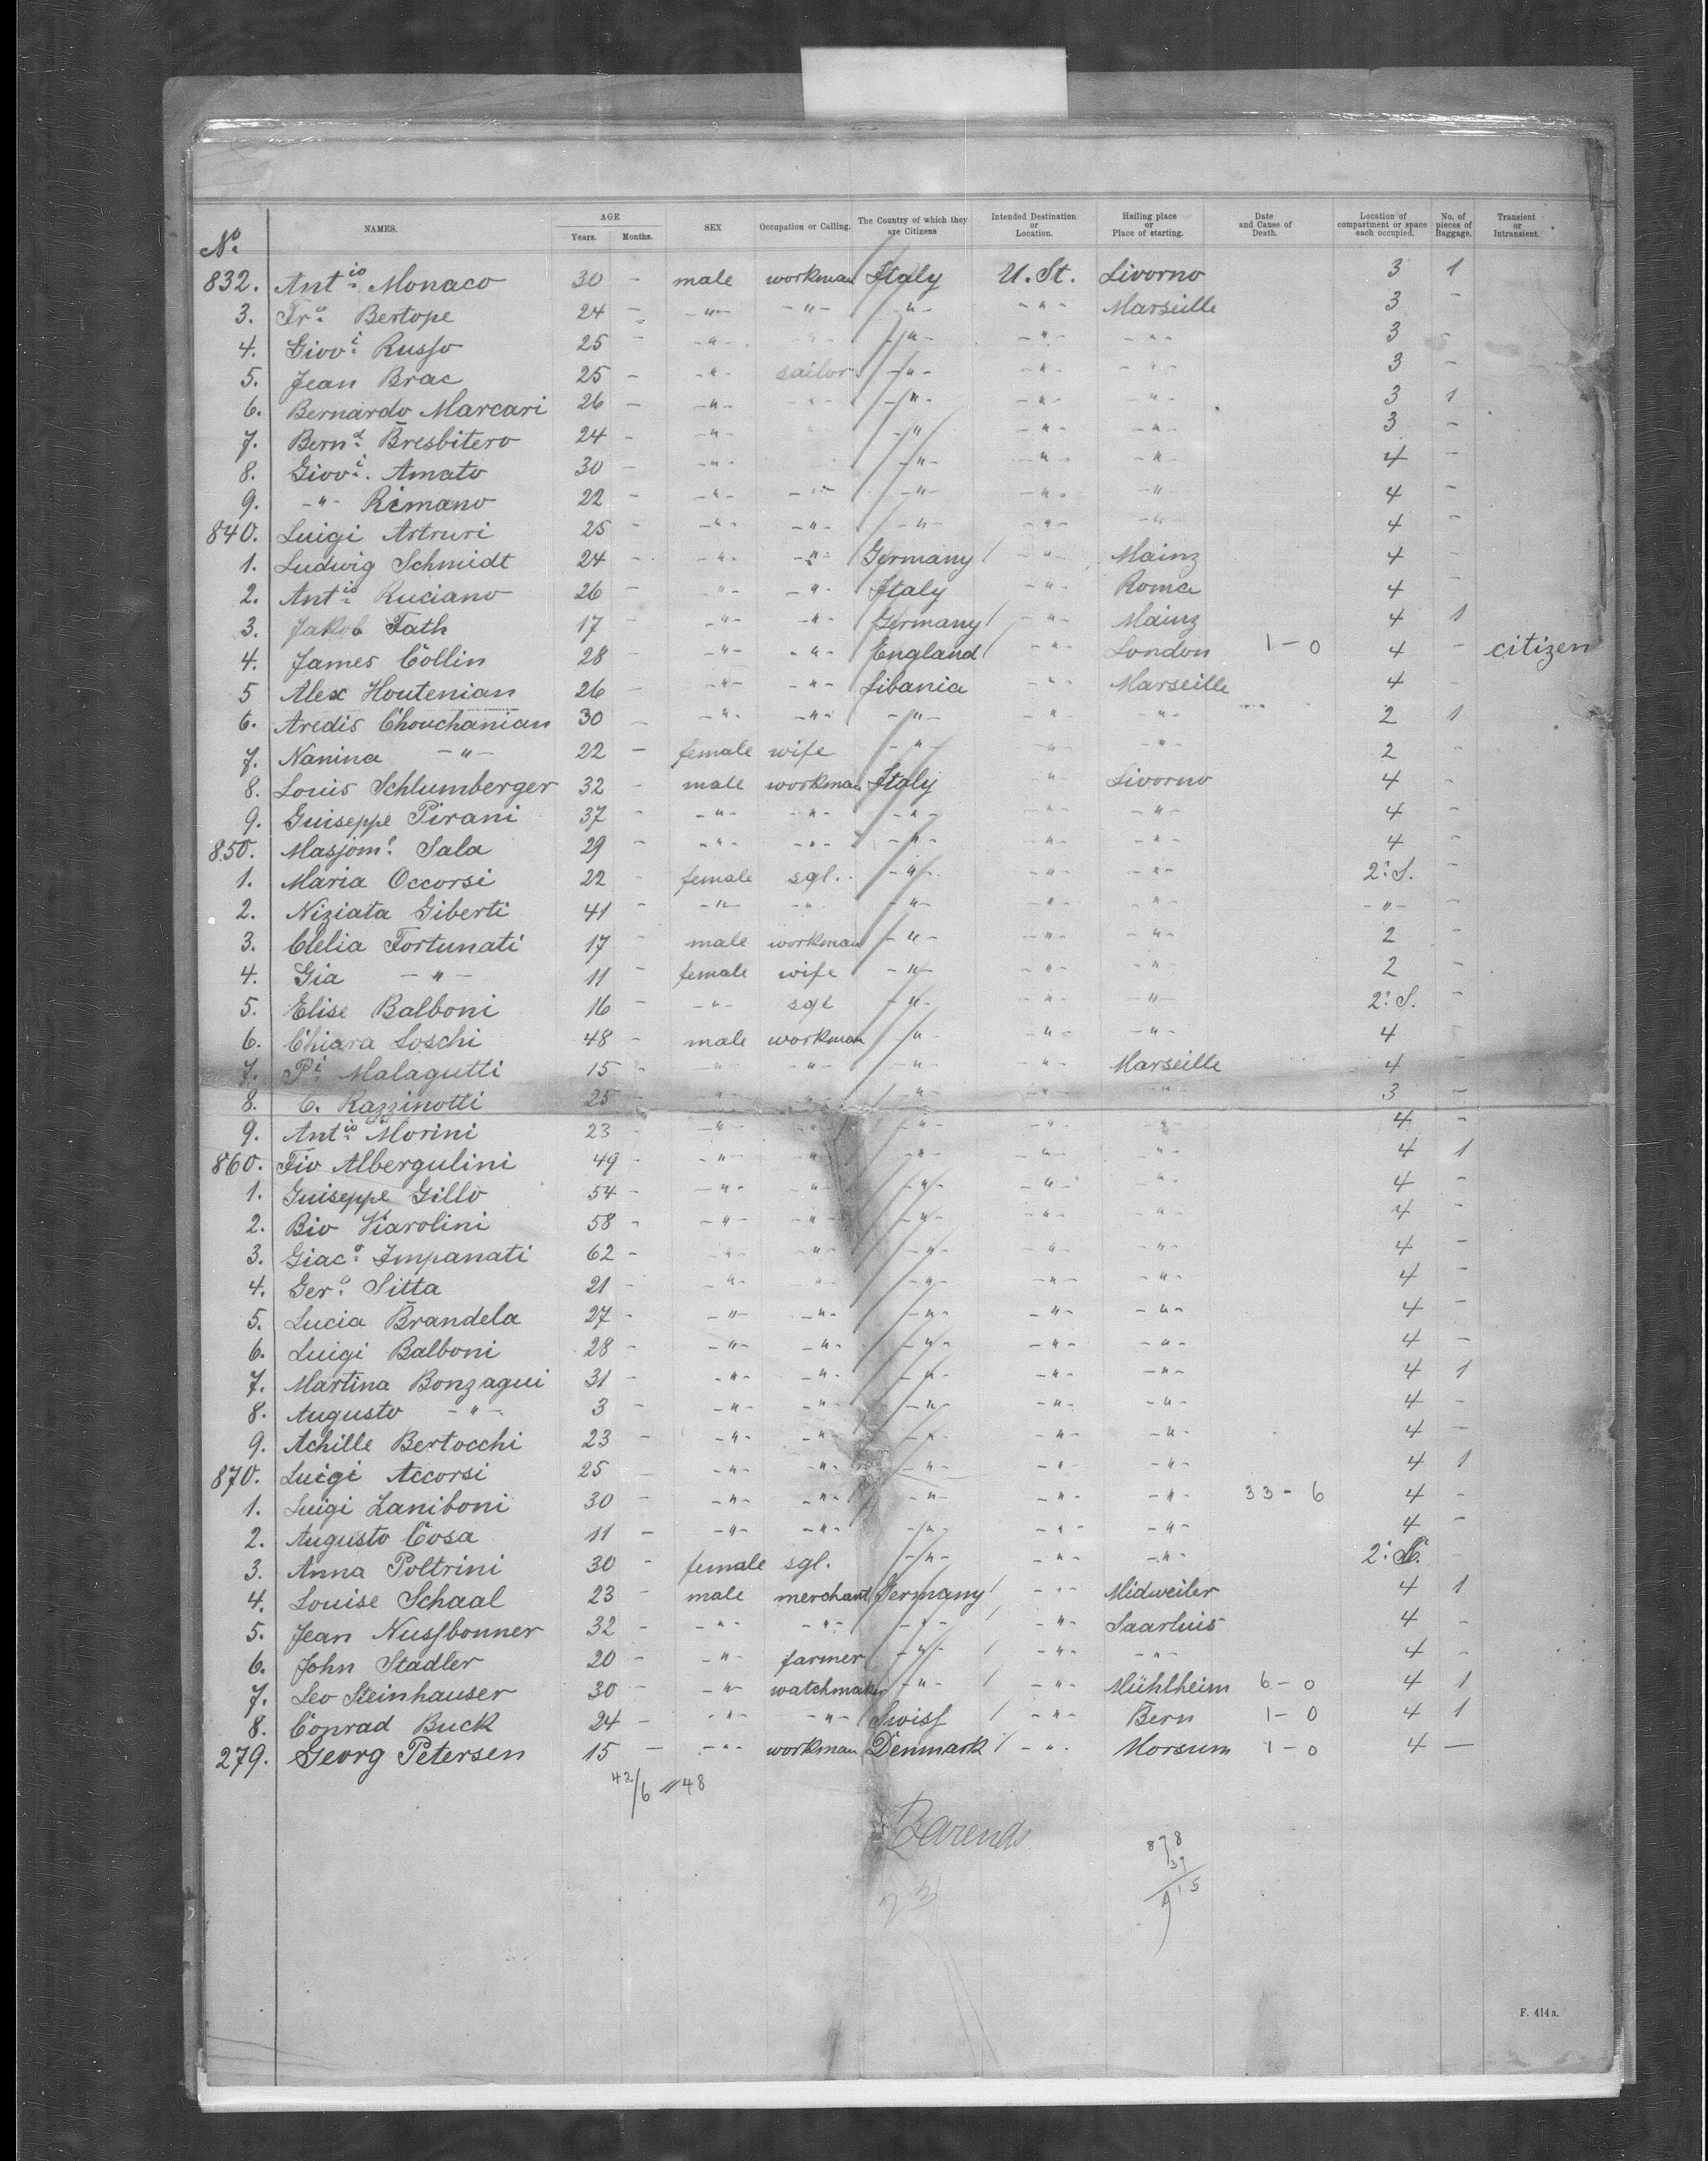 No. NAMES. AGE Years. Months. SEX Occupation or Calling. The Country of which they are Citizens Intended Destination or Location. Hailing place or Place of starting. Date and Cause of Death. Location of compartment or space each occupied. No. of pieces of Baggage. Transient or Intransient.
832. Antio Monaco 30 - male workman Italy U. St. Livorno 3 1
3. Fro Bertope 24 - -"- -"- -"- -"- Marseille 3 -
4. Giovi Russo 25 - -"- -"- -"- -"- -"- 3 -
5. Jean Brac 25 - -"- sailor -"- -"- -"- 3 -
6. Bernardo Marcari 26 - -"- -"- -"- -"- -"- 3 1
7. Bernd Bresbitero 24 - -"- -"- -"- -"- 3 -
8. Giovi. Amato 30 - -"- -"- -"- -"- 4 -
9. -"- Rimano 22 - -"- -"- -"- -"- -"- 4 -
840. Luigi Artruri 25 - -"- -"- -"- -"- -"- 4 -
1. Ludwig Schmidt 24 - -"- -"- Germany -"- Mainz 4 -
2. Antio Ruciano 26 - -"- -"- Italy -"- Roma 4 -
3. Jakob Fath 17 - -"- -"- Germany -"- Mainz 4 1
4. James Collin 28 - -"- -"- England -"- London 1-0 4 - citizen
5 Alex Houtenian 26 - -"- -"- Libania -"- Marseille 4 -
6. Aredis Chouchanian 30 - -"- -"- -"- -"- -"- 2 1
7. Nanina -"- 22 - female wife -"- -"- -"- 2 -
8. Louis Schlumberger 32 - male workman Italy -"- Livorno 4 -
9. Guiseppe Pirani 37 - -"- -"- -"- -"- -"- 4 -
850. Masjoml. Sala 29 - -"- -"- -"- -"- -"- 4 -
1. Maria Occorsi 22 - female sgl. -"- -"- -"- 2. S. -
2. Niziata Giberti 41 - -"- -"- -"- -"- -"- -"- -
3. Clelia Fortunati 17 - male workman -"- -"- -"- 2 -
4. Gia -"- 11 - female wife -"- -"- -"- 2 -
5. Elise Balboni 16 - -"- sgl -"- -"- -"- 2. S. -
6. Chiara Loschi 48 - male workman -"- -"- -"- 4
7. Pi Malagutti 15 - -"- -"- -"- -"- Marseille 4 -
8. C. Razzinotti 25 - -"- -"- -"- -"- -"- 3 -
9. Antio Morini 23 - -"- -"- -"- -"- -"- 4 -
860. Fio Albergulini 49 - -"- -"- -"- -"- -"- 4 1
1. Guiseppe Gillo 54 - -"- -"- -"- -"- -"- 4 -
2. Bio Viarolini 58 - -"- -"- -"- -"- -"- 4 -
3. Giaco Impanati 62 - -"- -"- -"- -"- -"- 4 -
4. Gero Sitta 21 - -"- -"- -"- -"- -"- 4 -
5. Lucia Brandela 27 - -"- -"- -"- -"- -"- 4 -
6. Luigi Balboni 28 - -"- -"- -"- -"- -"- 4 -
7. Martina Bonzagui 31 - -"- -"- -"- -"- -"- 4 1
8. Augusto -"- 3 - -"- -"- -"- -"- -"- 4 -
9. Achille Bertocchi 23 - -"- -"- -"- -"- -"- 4 -
870. Luigi Accorsi 25 - -"- -"- -"- -"- -"- 4 1
1. Luigi Zaniboni 30 - -"- -"- -"- -"- -"- 33-6 4 -
2. Augusto Cosa 11 - -"- -"- -"- -"- -"- 4 -
3. Anna Poltrini 30 - female sgl. -"- -"- -"- 2. S. -
4. Louise Schaal 23 - male merchant Germany -"- Midweiler 4 1
5. Jean Nussbonner 32 - -"- -"- -"- -"- Saarluis 4 -
6. John Stadler 20 - -"- farmer -"- -"- -"- 4 -
7. Leo Steinhauser 30 - -"- watchmaker -"- -"- Mühlheim 6-0 4 1
8. Conrad Buck 24 - -"- -"- Swiss -"- Bern 1-0 4 1
279. Georg Petersen 15 - -"- workman Denmark -"- Morsum 1-0 4 -
42/6 // 48
Barends
878
37
915
23
F. 414 a.